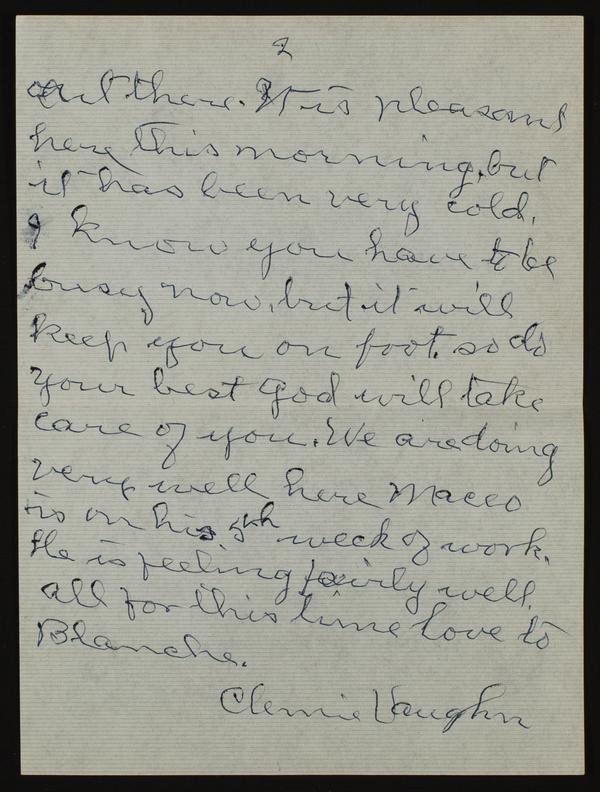 2
out there. It is pleasant
here this morning, but
it has been very cold.
I know you have to be
busy now, but it will
keep you on foot. so do
your best God will take
care of you. We are doing
very well here Maceo
is on his 5th week of work.
He is feeling fairly well.
All for this time love to
Blanche.
Clemie Vaughn